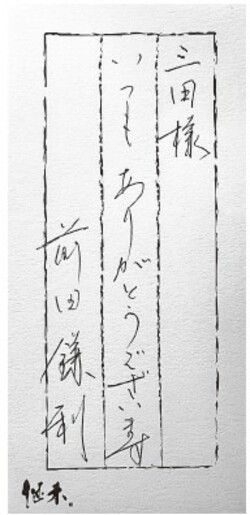 三田様
いつも ありがとうございます
前田鎌利